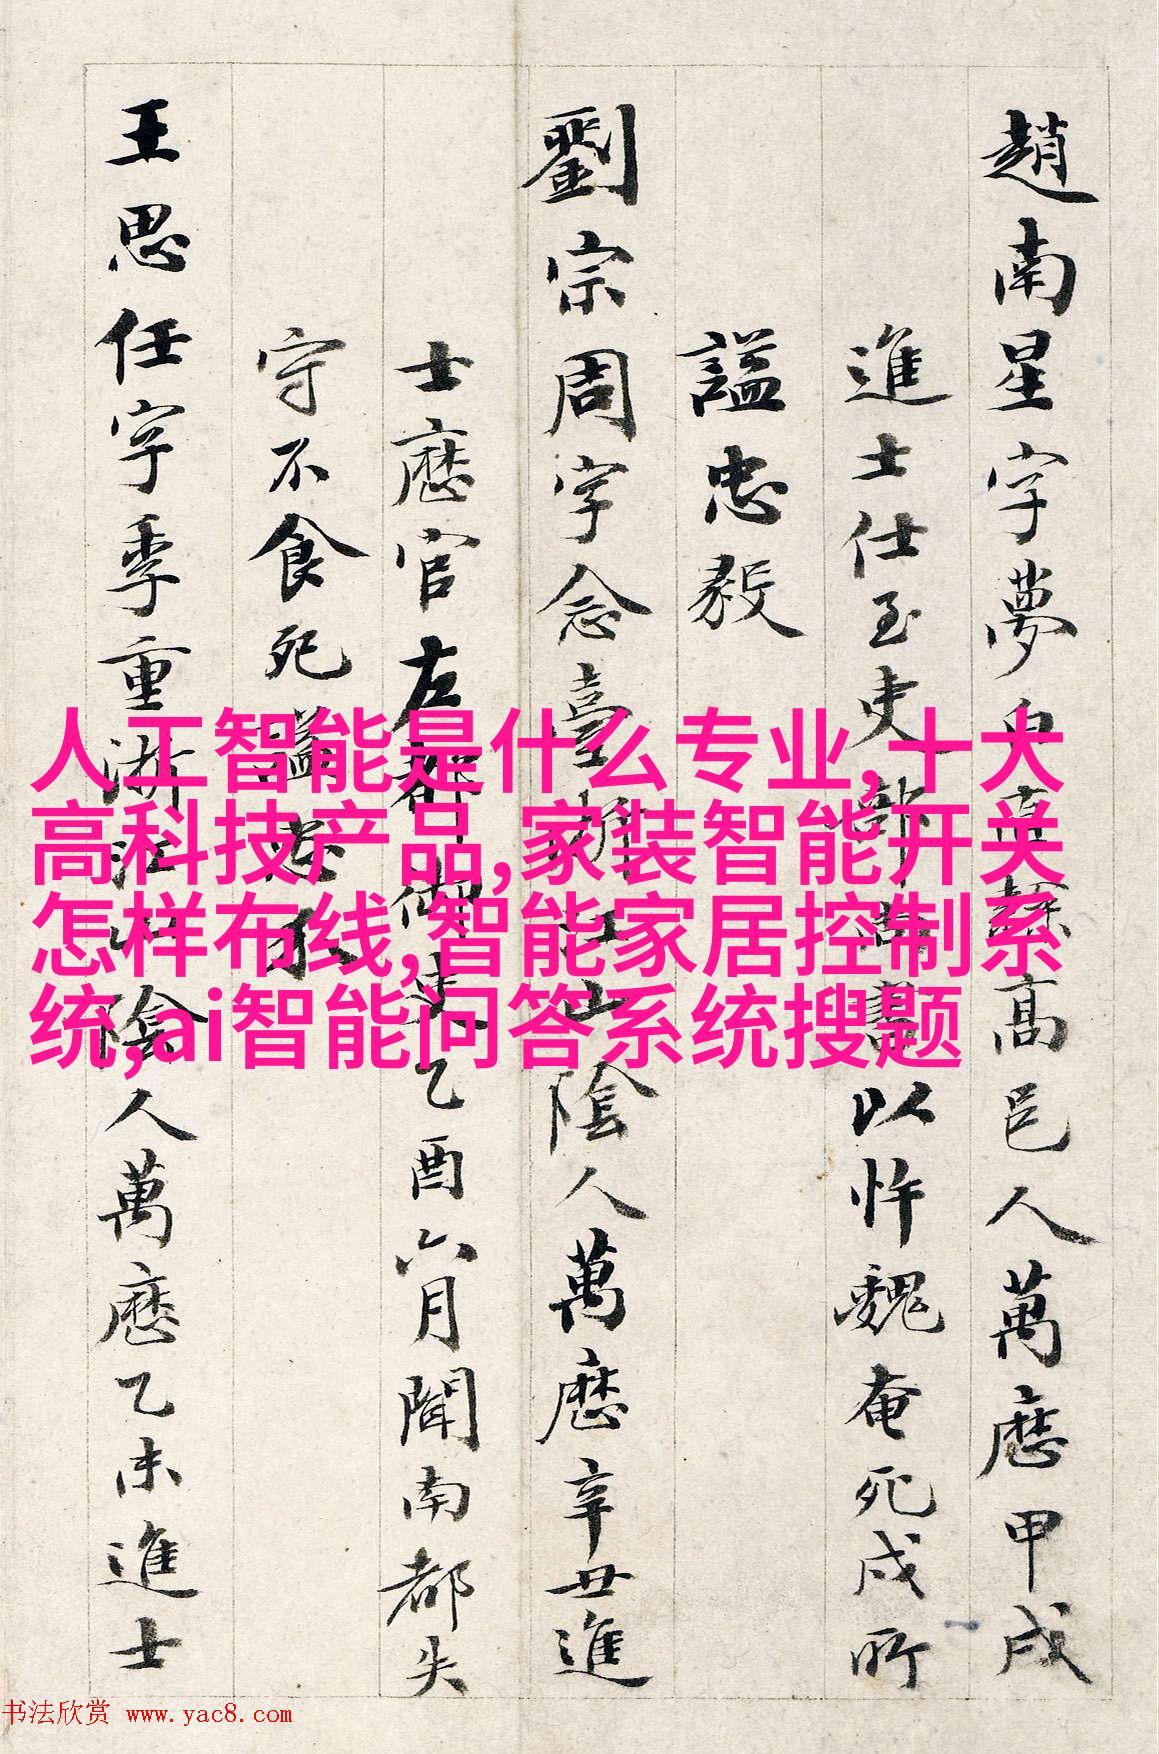 趙南星字夢白直隸高邑人萬曆甲戌
進士仕至吏部尚書以忤魏奄死戍所
謚忠毅
劉宗周字念臺浙江山陰人萬曆辛丑進
士歷官左都御史乙酉六月聞南都失
守不食死謚
王思任字季重浙江山陰人萬曆乙未進士
人工智能是什么专业,十大
高科技产品,家装智能开关
怎样布线,智能家居控制系
统,ai智能问答系统搜题
书法欣赏 www.yac8.com